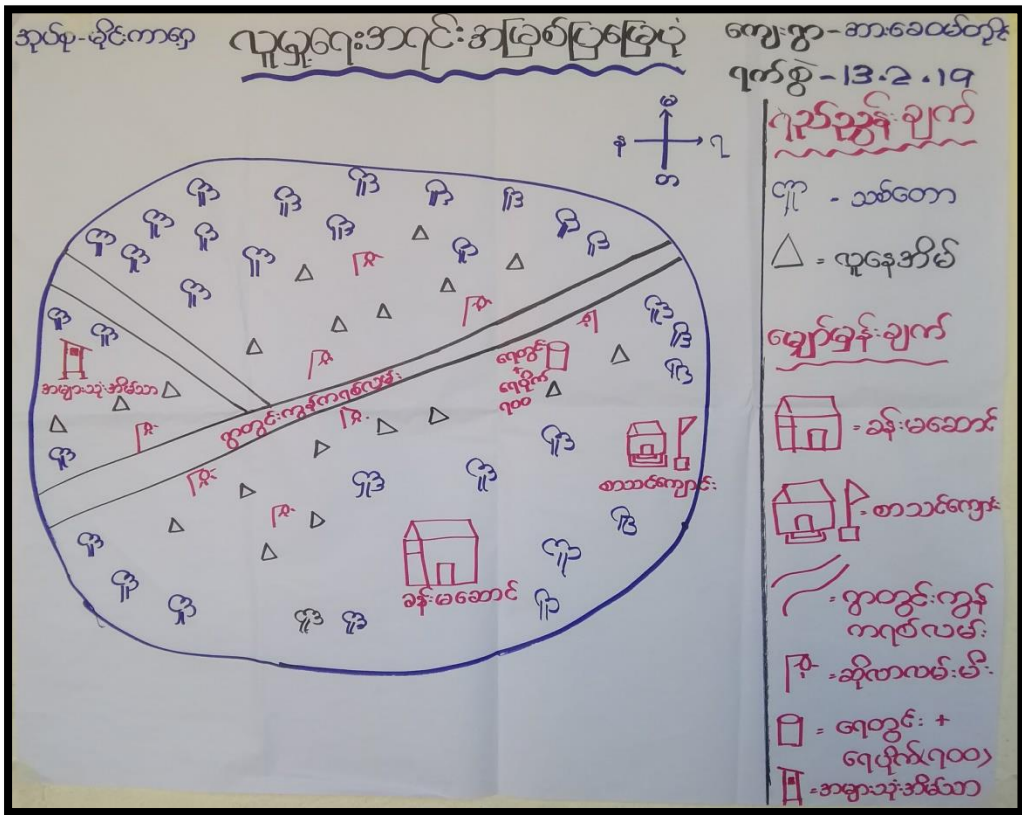 အုပ်စု-မိုင်းကာရှေ
လူမှုရေးအရင်းအမြစ်ပြမြေပုံ
ကျေးရွာ-ဆားခေဝမ်တိုင်း
ရက်စွဲ-13.2.19
မ
န
ရ
တ
ရည်ညွှန်းချက်
- သစ်တော
= လူနေအိမ်
မျှော်မှန်းချက်
= ခန်းမဆောင်
= စာသင်ကျောင်း
= ရွာတွင်းကွန်
ကရစ်လမ်း
= ဆိုလာလမ်းမီး
= ရေတွင်း +
ရေပိုက်(၇၀၀)
= အများသုံးအိမ်သာ
အများသုံးအိမ်သာ
ရွာတွင်းကွန်ကရစ်လမ်း
ရေတွင်း
+
ရေပိုက်
၇၀၀
စာသင်ကျောင်း
ခန်းမဆောင်